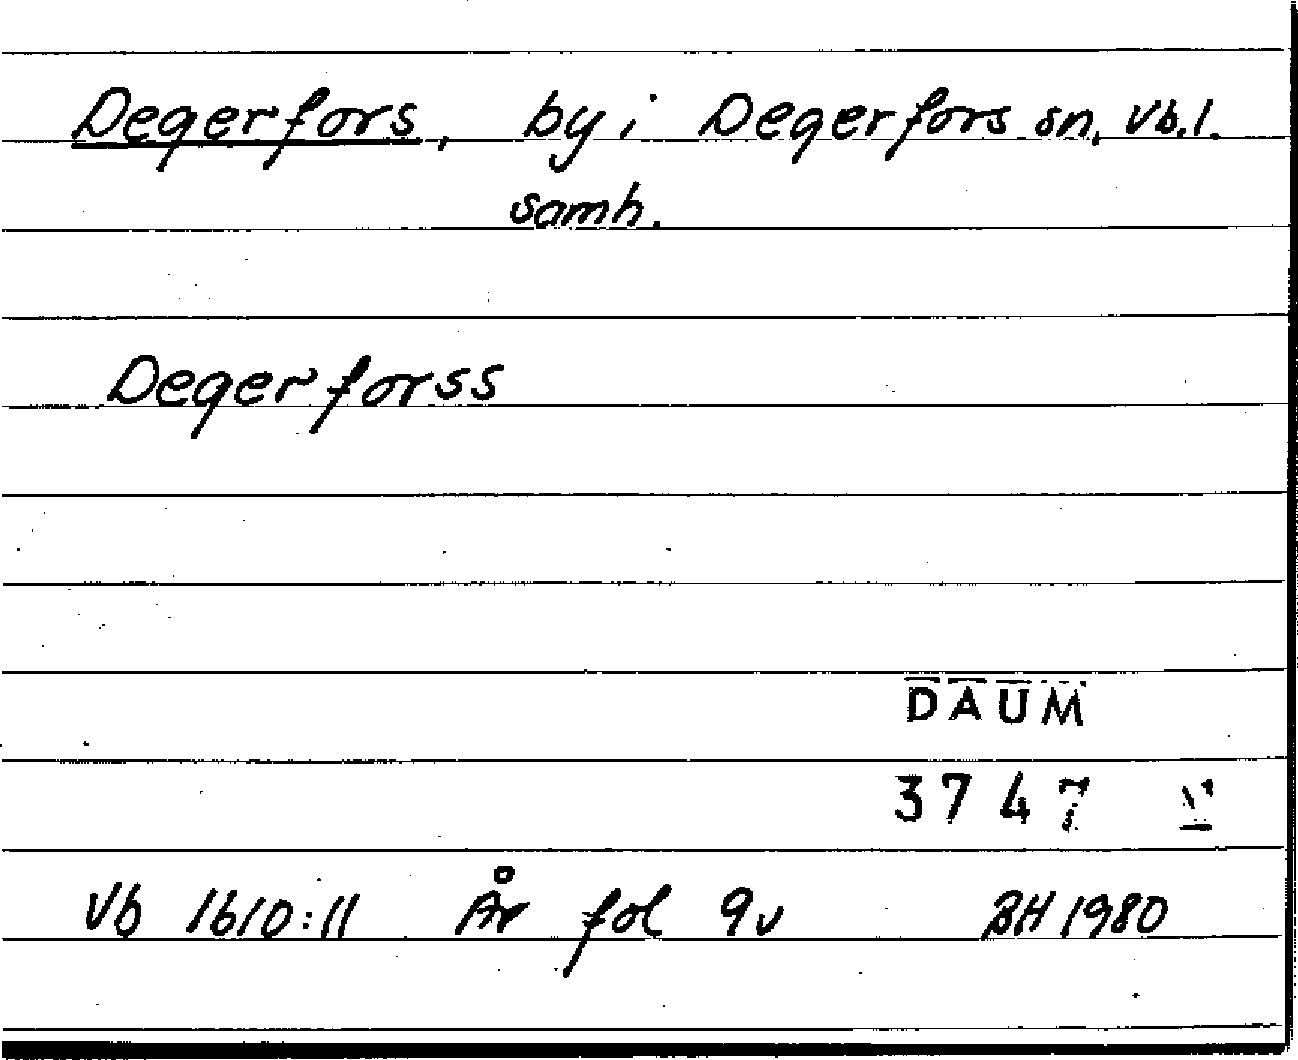 Degerfors, by i Degerfors sn. Vb.l.
samh.
Degerforss
DAUM
3747
Vb 1610:11 År fol 9v BH 1980